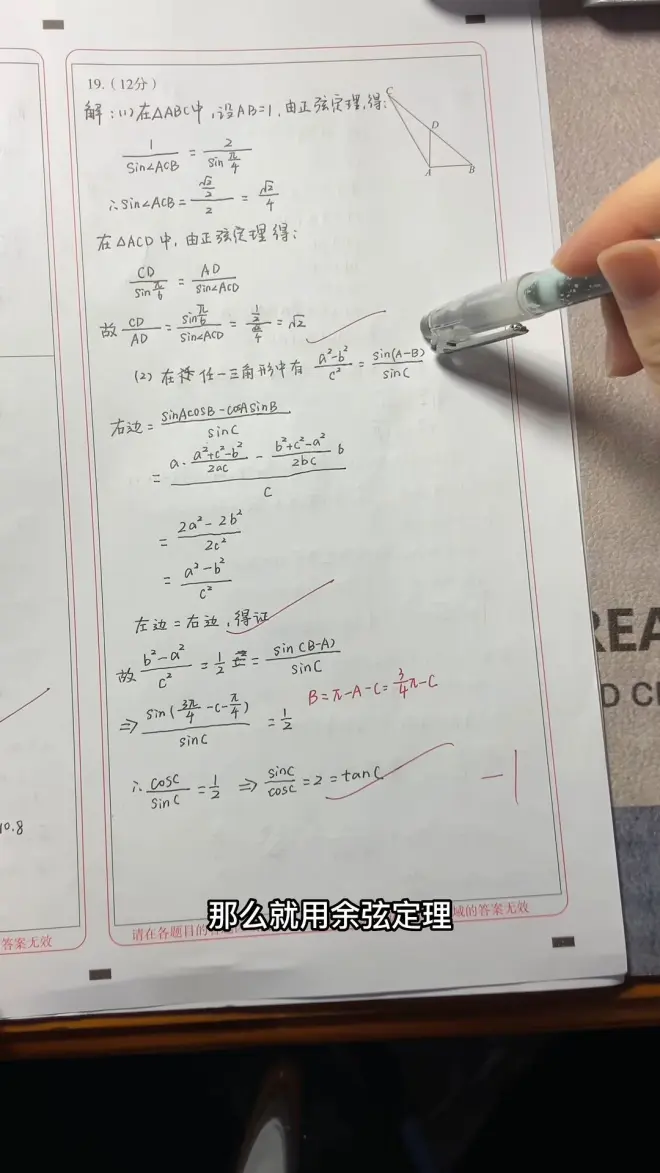 19.(12分)
解:(1)在△ABC中,设AB=1,由正弦定理,得:
C
D
A
B
1/sin∠ACB = 2/sin π/4
∴sin∠ACB = (√2/2)/2 = √2/4
在△ACD中,由正弦定理得:
CD/sin π/6 = AD/sin∠ACD
故 CD/AD = sin π/6/sin∠ACD = (1/2)/(√2/4) = √2
(2)在任一三角形中有 (a²-b²)/c² = sin(A-B)/sinC
右边 = (sinAcosB-cosAsinB)/sinC
= (a·(a²+c²-b²)/2ac - (b²+c²-a²)/2bc b)/c
= (2a²-2b²)/2c²
= (a²-b²)/c²
左边=右边,得证
故 (b²-a²)/c² = 1/2 = sin(B-A)/sinC
B=π-A-C=3/4π-C
⇒ sin(3π/4-C-π/4)/sinC = 1/2
∴ cosC/sinC = 1/2 ⇒ sinC/cosC = 2 = tanC
-1
那么就用余弦定理
请在各题目的
域的答案无效
答案无效
10.8
REA
D C